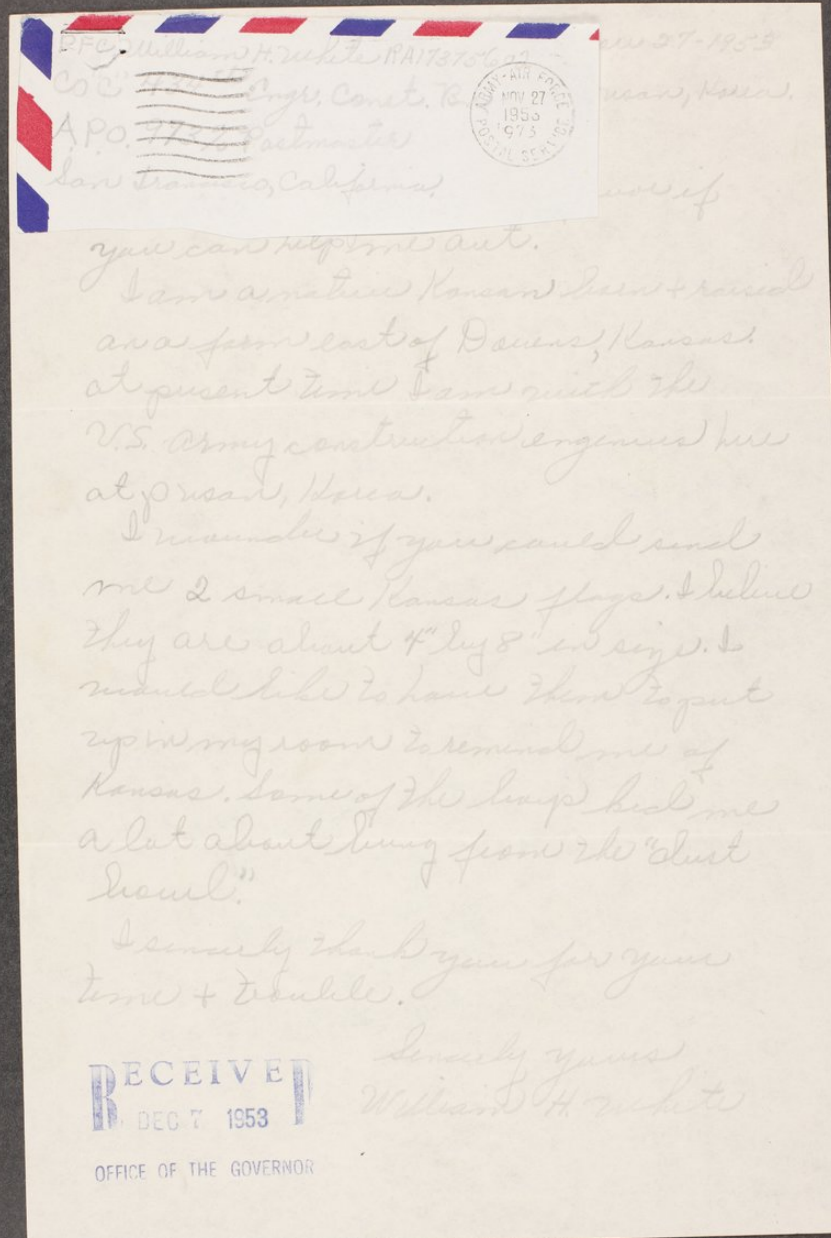 PFC William H. White RA
27-1953
Co "C" 434th Engr. Const. B
usan, Korea.
A.P.O. 973 % Postmaster
San Francisco, California.
ARMY-AIR FORCE
NOV 27
1953
973
POSTAL SERVICE
vor if
you can help me out.
I am a native Kansan born + raised
on a farm east of Downs, Kansas.
at present time I am with the
U.S. Army construction engenius here
at pusan, Korea.
I wounder if you could send
me 2 small Kansas flags. I believe
they are about 4" by 8" in size. I
would like to have them to put
up in my room to remind me of
Kansas. Some of the boys kid me
a lot about being from the "dust
bowl."
I sincerly thank you for your
time + trouble.
Sincerly yours
William H. White
RECEIVED
DEC 7 1953
OFFICE OF THE GOVERNOR